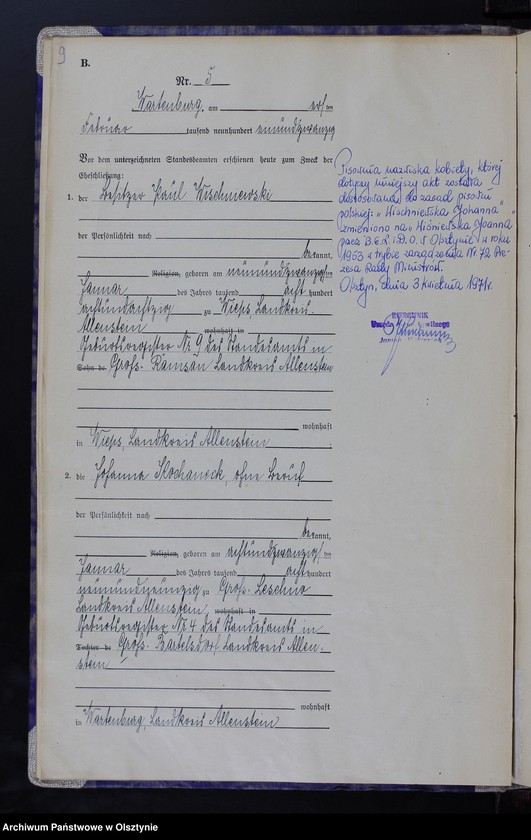 9
B.
Nr. 5
Wartenburg, am ersten
Februar tausend neunhundert neunundzwanzig
Vor dem unterzeichneten Standesbeamten erschienen heute zum Zweck der
Eheschließung:
1. der Besitzer Paul Wischnewski
der Persönlichkeit nach
bekannt,
Religion, geboren am neunundzwanzigsten
Januar des Jahres tausend acht hundert
achtundachtzig zu Wieps, Landkreis
Allenstein wohnhaft in
Geburtsregister Nr. 9 des Standesamts in
Sohn de Groß. Ramsau Landkreis Allenstein
wohnhaft
in Wieps, Landkreis Allenstein
2. die Johanna Kochaneck, ohne Beruf
der Persönlichkeit nach
bekannt,
Religion, geboren am achtundzwanzigsten
Januar des Jahres tausend acht hundert
neunundneunzig zu Groß. Leschno
Landkreis Allenstein, wohnhaft in
Geburtsregister Nr. 4 des Standesamts in
Tochter de Groß. Bartelsdorf Landkreis Allen-
stein
wohnhaft
in Wartenburg, Landkreis Allenstein
Pisownia nazwiska kobiety, której
dotyczy niniejszy akt została
dostosowana do zasad pisowni
polskiej: z "Wischniewska Johanna"
zmieniono na "Wiśniewska Joanna"
przez B.E.L. i D.O. w Olsztynie w roku
1953 w trybie zarządzenia Nr 72 Pre-
zesa Rady Ministrów.
Olsztyn, dnia 3 kwietnia 1971r.
KIEROWNIK
Urzędu Stanu Cywilnego
Archiwum Państwowe w Olsztynie